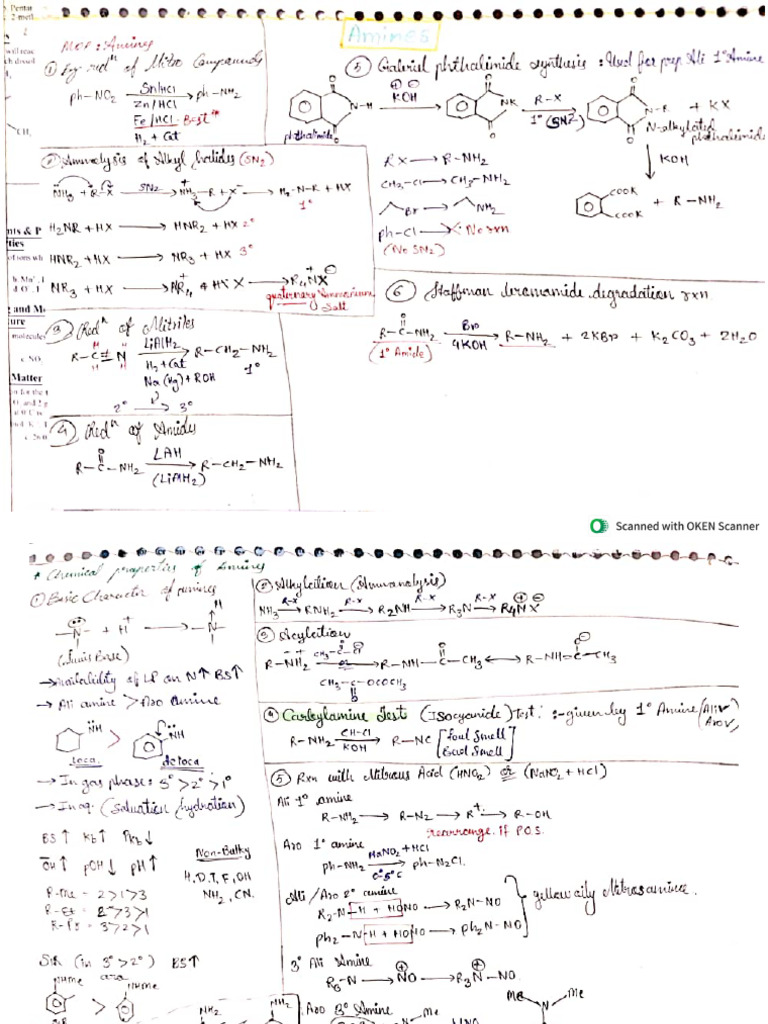 Amines
MOP: Amines
① By redⁿ of Nitro Compounds
ph-NO₂ → ph-NH₂
Sn/HCl
Zn/HCl
Fe/HCl Best*
H₂ + Cat
② Ammonolysis of Alkyl halides (SN2)
NH₃ + R-X SN2 → NH₃-R + X⁻ → H₂-N-R + HX
1°
H₂NR + HX → HNR₂ + HX 2°
HNR₂ + HX → NR₃ + HX 3°
NR₃ + HX → → R₄N⁺X⁻
quaternary Ammonium Salt
③ Redⁿ of Nitriles
R-C≡N → R-CH₂-NH₂
LiAlH₂
H₂ + Cat
Na(Hg) + ROH
1°
2° → 3°
④ Redⁿ of Amides
R-C-NH₂ LAH → R-CH₂-NH₂
O
(LiAlH₂)
⑤ Gabriel phthalimide synthesis: Used for prep Ali 1° Amine
N-H KOH → NK R-X → N-R + KX
1° (SN2)
phthalimide
N-alkylated phthalimide
KOH
COOK
COOK + R-NH₂
RX → R-NH₂
CH₃-Cl → CH₃-NH₂
Br → NH₂
ph-Cl → X No rxn
(No SN2)
⑥ Hoffman bromamide degradation rxn
R-C-NH₂ Br → R-NH₂ + 2KBr + K₂CO₃ + 2H₂O
O
4KOH
(1° Amide)
ties
Matter
Scanned with OKEN Scanner
* Chemical properties of Amines
① Basic Character of amines
-N- + H⁺ → -N-
H
(Lewis Base)
→ Availability of LP on N↑ BS↑
→ Ali amine > Aro amine
NH > NH
loca. deloca
→ In gas phase: 3° > 2° > 1°
→ In aq. (Saluation/hydration)
BS↑ Kb↑ Pkb↓
OH↑ pOH↓ pH↑
R-Me - 2>1>3
R-Et - 2>3>1
R-Pr - 3>2>1
Non-Bulky
H, D, T, F, OH
NH₂, CN.
SIR (in 3° > 2°) BS↑
NHMe > NHMe
② Alkylation (Ammanalysis)
NH₃ R-X → RNH₂ R-X → R₂NH R-X → R₃N R-X → R₄N⁺X⁻
③ Acylation
R-NH₂ → R-NH-C-CH₃ ↔ R-NH=C-CH₃
CH₃-C-Cl
or
CH₃-C-OCOCH₃
④ Carbylamine Test (Isocyanide) Test: - given by 1° Amine (Ali✓ Aro✓)
R-NH₂ CH-Cl → R-NC [Foul Smell
KOH Bad Smell]
⑤ Rxn with Nitrous Acid (HNO₂) or (NaNO₂ + HCl)
Ali 1° amine
R-NH₂ → R-N₂ → R⁺ → R-OH
rearrange. if POS.
Aro 1° amine
ph-NH₂ NaNO₂+HCl → ph-N₂Cl.
0°-5°C
Ali/Aro 2° amine
R₂-N-H + HONO → R₂N-NO
ph₂-N-H + HONO → ph₂N-NO
yellow oily Nitrosamine.
3° Ali Amine
R₃-N → NO → R₃N-NO
Aro 3° Amine
Me N Me